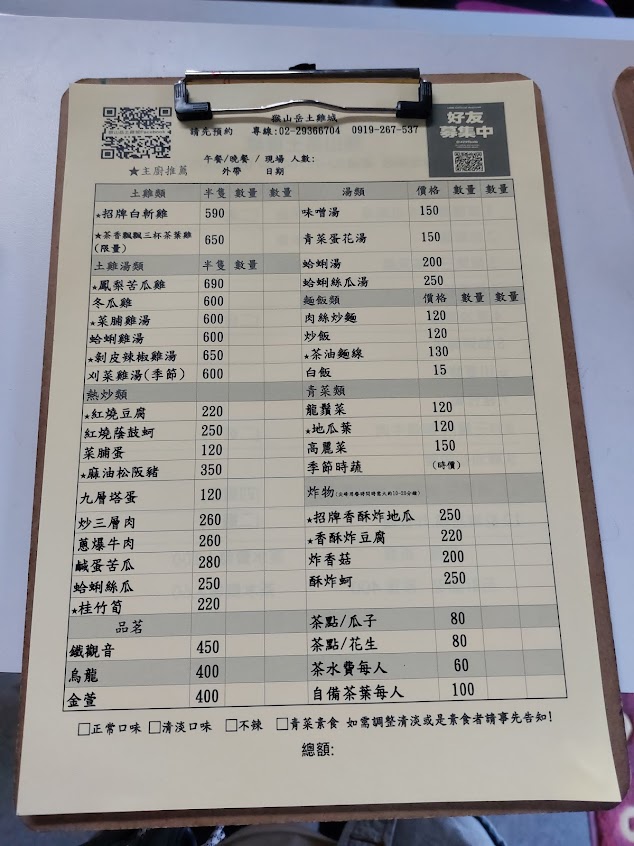 猴山岳土雞城
請先預約 專線:02-29366704 0919-267-537
好友
募集中
午餐/晚餐 / 現場 人數:
★主廚推薦 外帶 日期
土雞類 半隻 數量 數量 湯類 價格 數量 數量
★招牌白斬雞 590 味噌湯 150
★茶香飄飄三杯茶葉雞
(限量) 650 青菜蛋花湯 150
土雞湯類 半隻 數量 蛤蜊湯 200
★鳳梨苦瓜雞 690 蛤蜊絲瓜湯 250
冬瓜雞 600 麵飯類 價格 數量 數量
★菜脯雞湯 600 肉絲炒麵 120
蛤蜊雞湯 600 炒飯 120
★剝皮辣椒雞湯 650 ★茶油麵線 130
刈菜雞湯(季節) 600 白飯 15
熱炒類 青菜類
★紅燒豆腐 220 龍鬚菜 120
紅燒蔭鼓蚵 250 ★地瓜葉 120
菜脯蛋 120 高麗菜 150
★麻油松阪豬 350 季節時蔬 (時價)
九層塔蛋 120 炸物
炒三層肉 260 ★招牌香酥炸地瓜 250
蔥爆牛肉 260 ★香酥炸豆腐 220
鹹蛋苦瓜 280 炸香菇 200
蛤蜊絲瓜 250 酥炸蚵 250
★桂竹筍 220
品茗 茶點/瓜子 80
鐵觀音 450 茶點/花生 80
烏龍 400 茶水費每人 60
金萱 400 自備茶葉每人 100
□正常口味 □清淡口味 □不辣 □青菜素食 如需調整清淡或是素食者請事先告知!
總額: